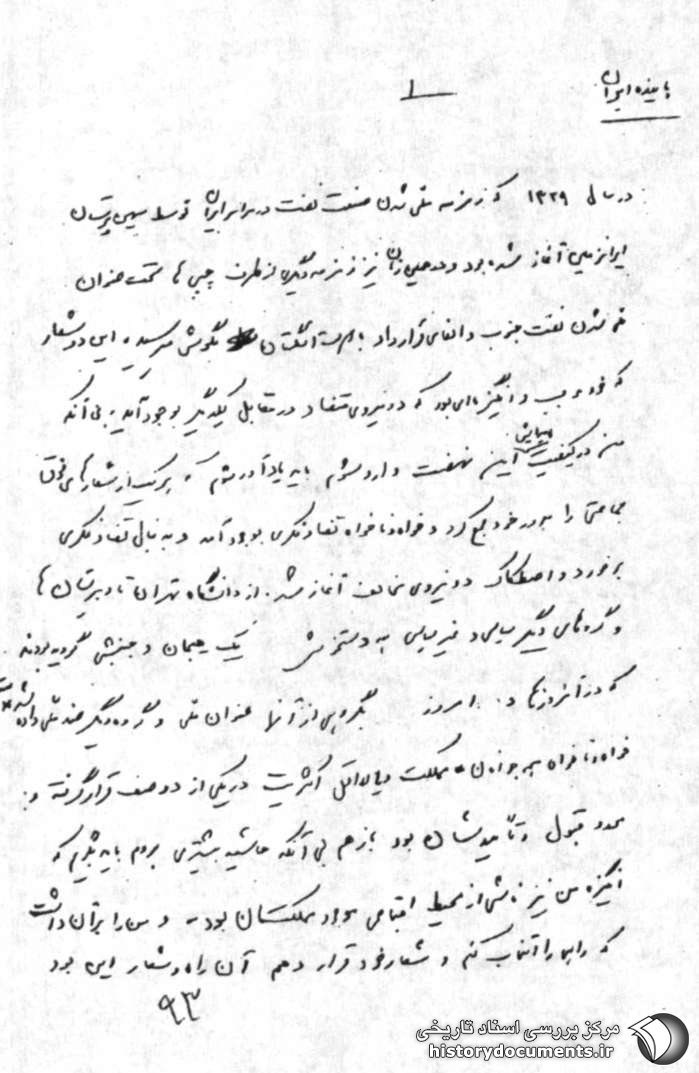 پاینده ایران
۱
در سال ۱۳۲۹ که زمزمه ملی شدن صنعت نفت در سراسر ایران توسط میهن پرستان
ایران آغاز شده بود و در همین زمان نیز زمزمه دیگری از طرف چپی ها تحت عنوان
ملی شدن نفت جنوب و الغای قرارداد با انگلستان بگوش میرسید، این دو شعار
که خود و انگیزه‌ای بود که دو نیروی متضاد در مقابل یکدیگر بوجود آید، بی آنکه
من در کیفیت این نهضت وارد شوم باید یادآور شوم که هر یک از شعارهای فوق
جماعتی را بدور خود جمع کرد و خواه و ناخواه تضاد فکری بوجود آمد و بدنبال تضاد فکری
برخورد و اصطکاک دو نیروی مخالف آغاز شد. از دانشگاه تهران تا دبیرستان ها
و گروههای دیگر سیاسی و غیر سیاسی یک هیجان و جنبشی گردیده بودند
که در آنروزها و امروز بگروهی از آنها عنوان ملی و گروه دیگر ضد ملی داده
خواه و ناخواه هر جوانی مملکت و یا اقلا اکثریت در یکی از دو صف قرار گرفته و
مورد قبول و تأییدشان بود بازهم بی آنکه حاشیه بیشتری بروم باید بگویم که
انگیزه من نیز ناشی از محیط اجتماعی موجود مملکتمان بود و من را بر آن داشت
که راهی را انتخاب کنم و شعار خود قرار دهم آن راه و شعار این بود
۹۳
مرکز بررسی اسناد تاریخی
historydocuments.ir